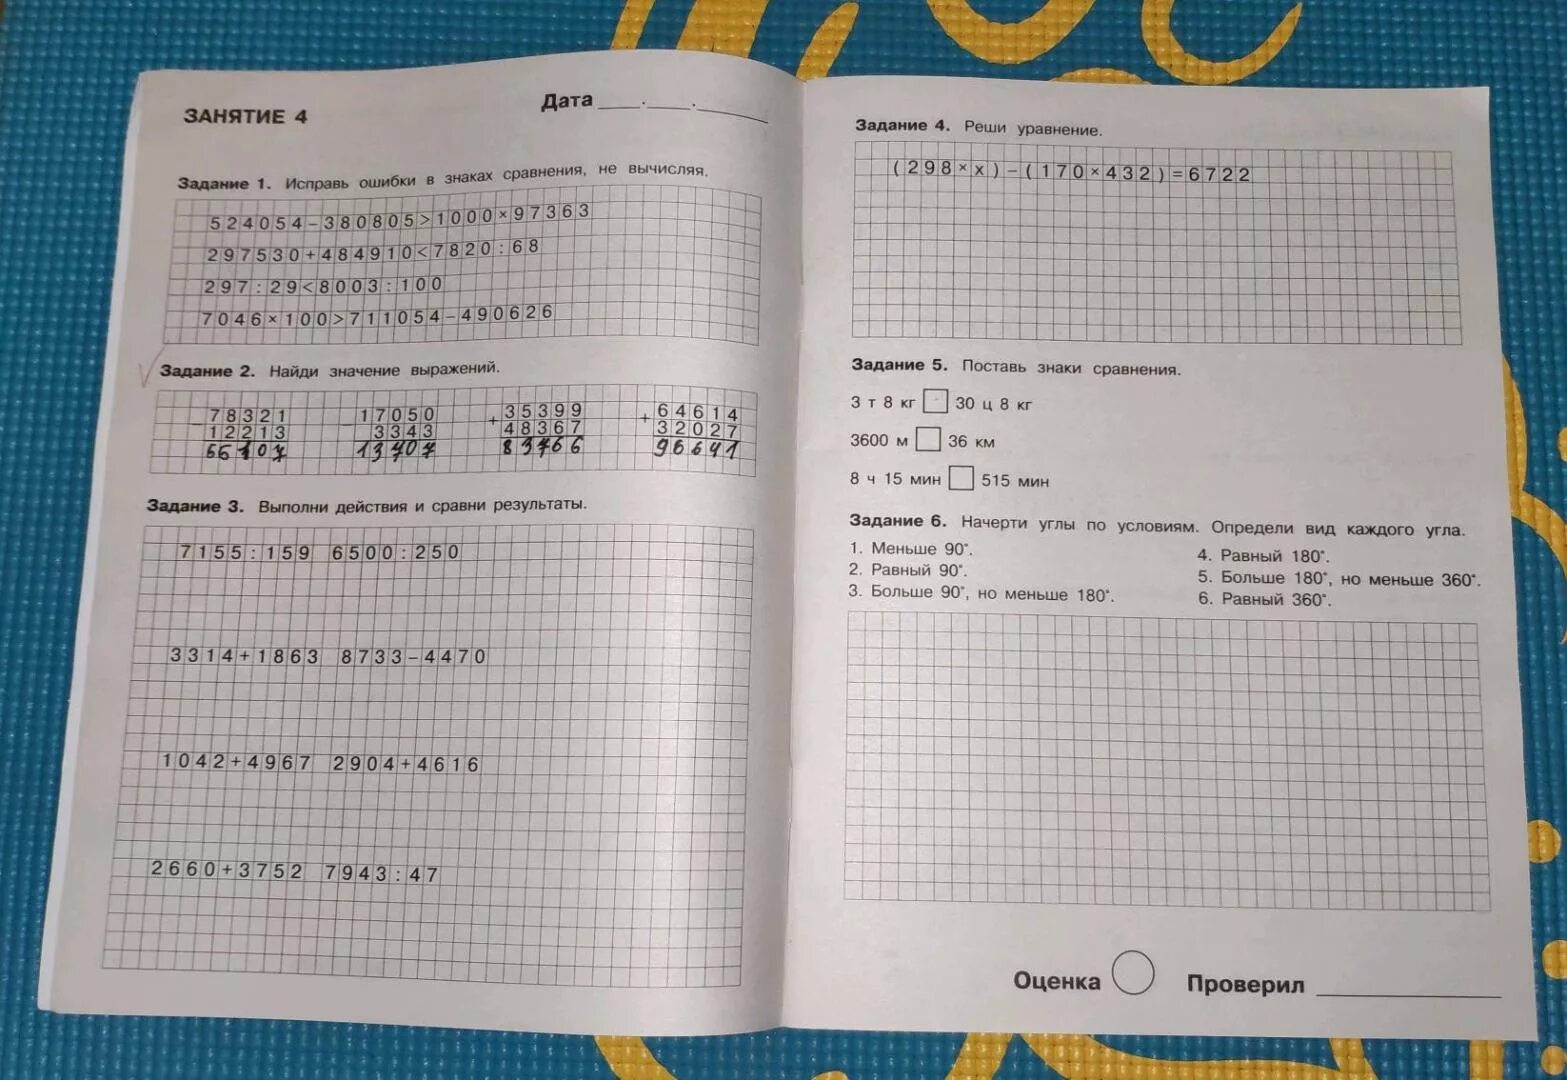 ЗАНЯТИЕ 4
Дата ____.____.________
Задание 1. Исправь ошибки в знаках сравнения, не вычисляя.
524054-380805>1000×97363
297530+484910<7820:68
297:29<8003:100
7046×100>711054-490626
Задание 2. Найди значение выражений.
78321 17050 35399 64614
- - + +
12213 3343 48367 32027
66107 13707 83766 96641
Задание 3. Выполни действия и сравни результаты.
7155:159 6500:250
3314+1863 8733-4470
1042+4967 2904+4616
2660+3752 7943:47
Задание 4. Реши уравнение.
(298×x)-(170×432)=6722
Задание 5. Поставь знаки сравнения.
3 т 8 кг □ 30 ц 8 кг
3600 м □ 36 км
8 ч 15 мин □ 515 мин
Задание 6. Начерти углы по условиям. Определи вид каждого угла.
1. Меньше 90°.
2. Равный 90°.
3. Больше 90°, но меньше 180°.
4. Равный 180°.
5. Больше 180°, но меньше 360°.
6. Равный 360°.
Оценка ○ Проверил ____________